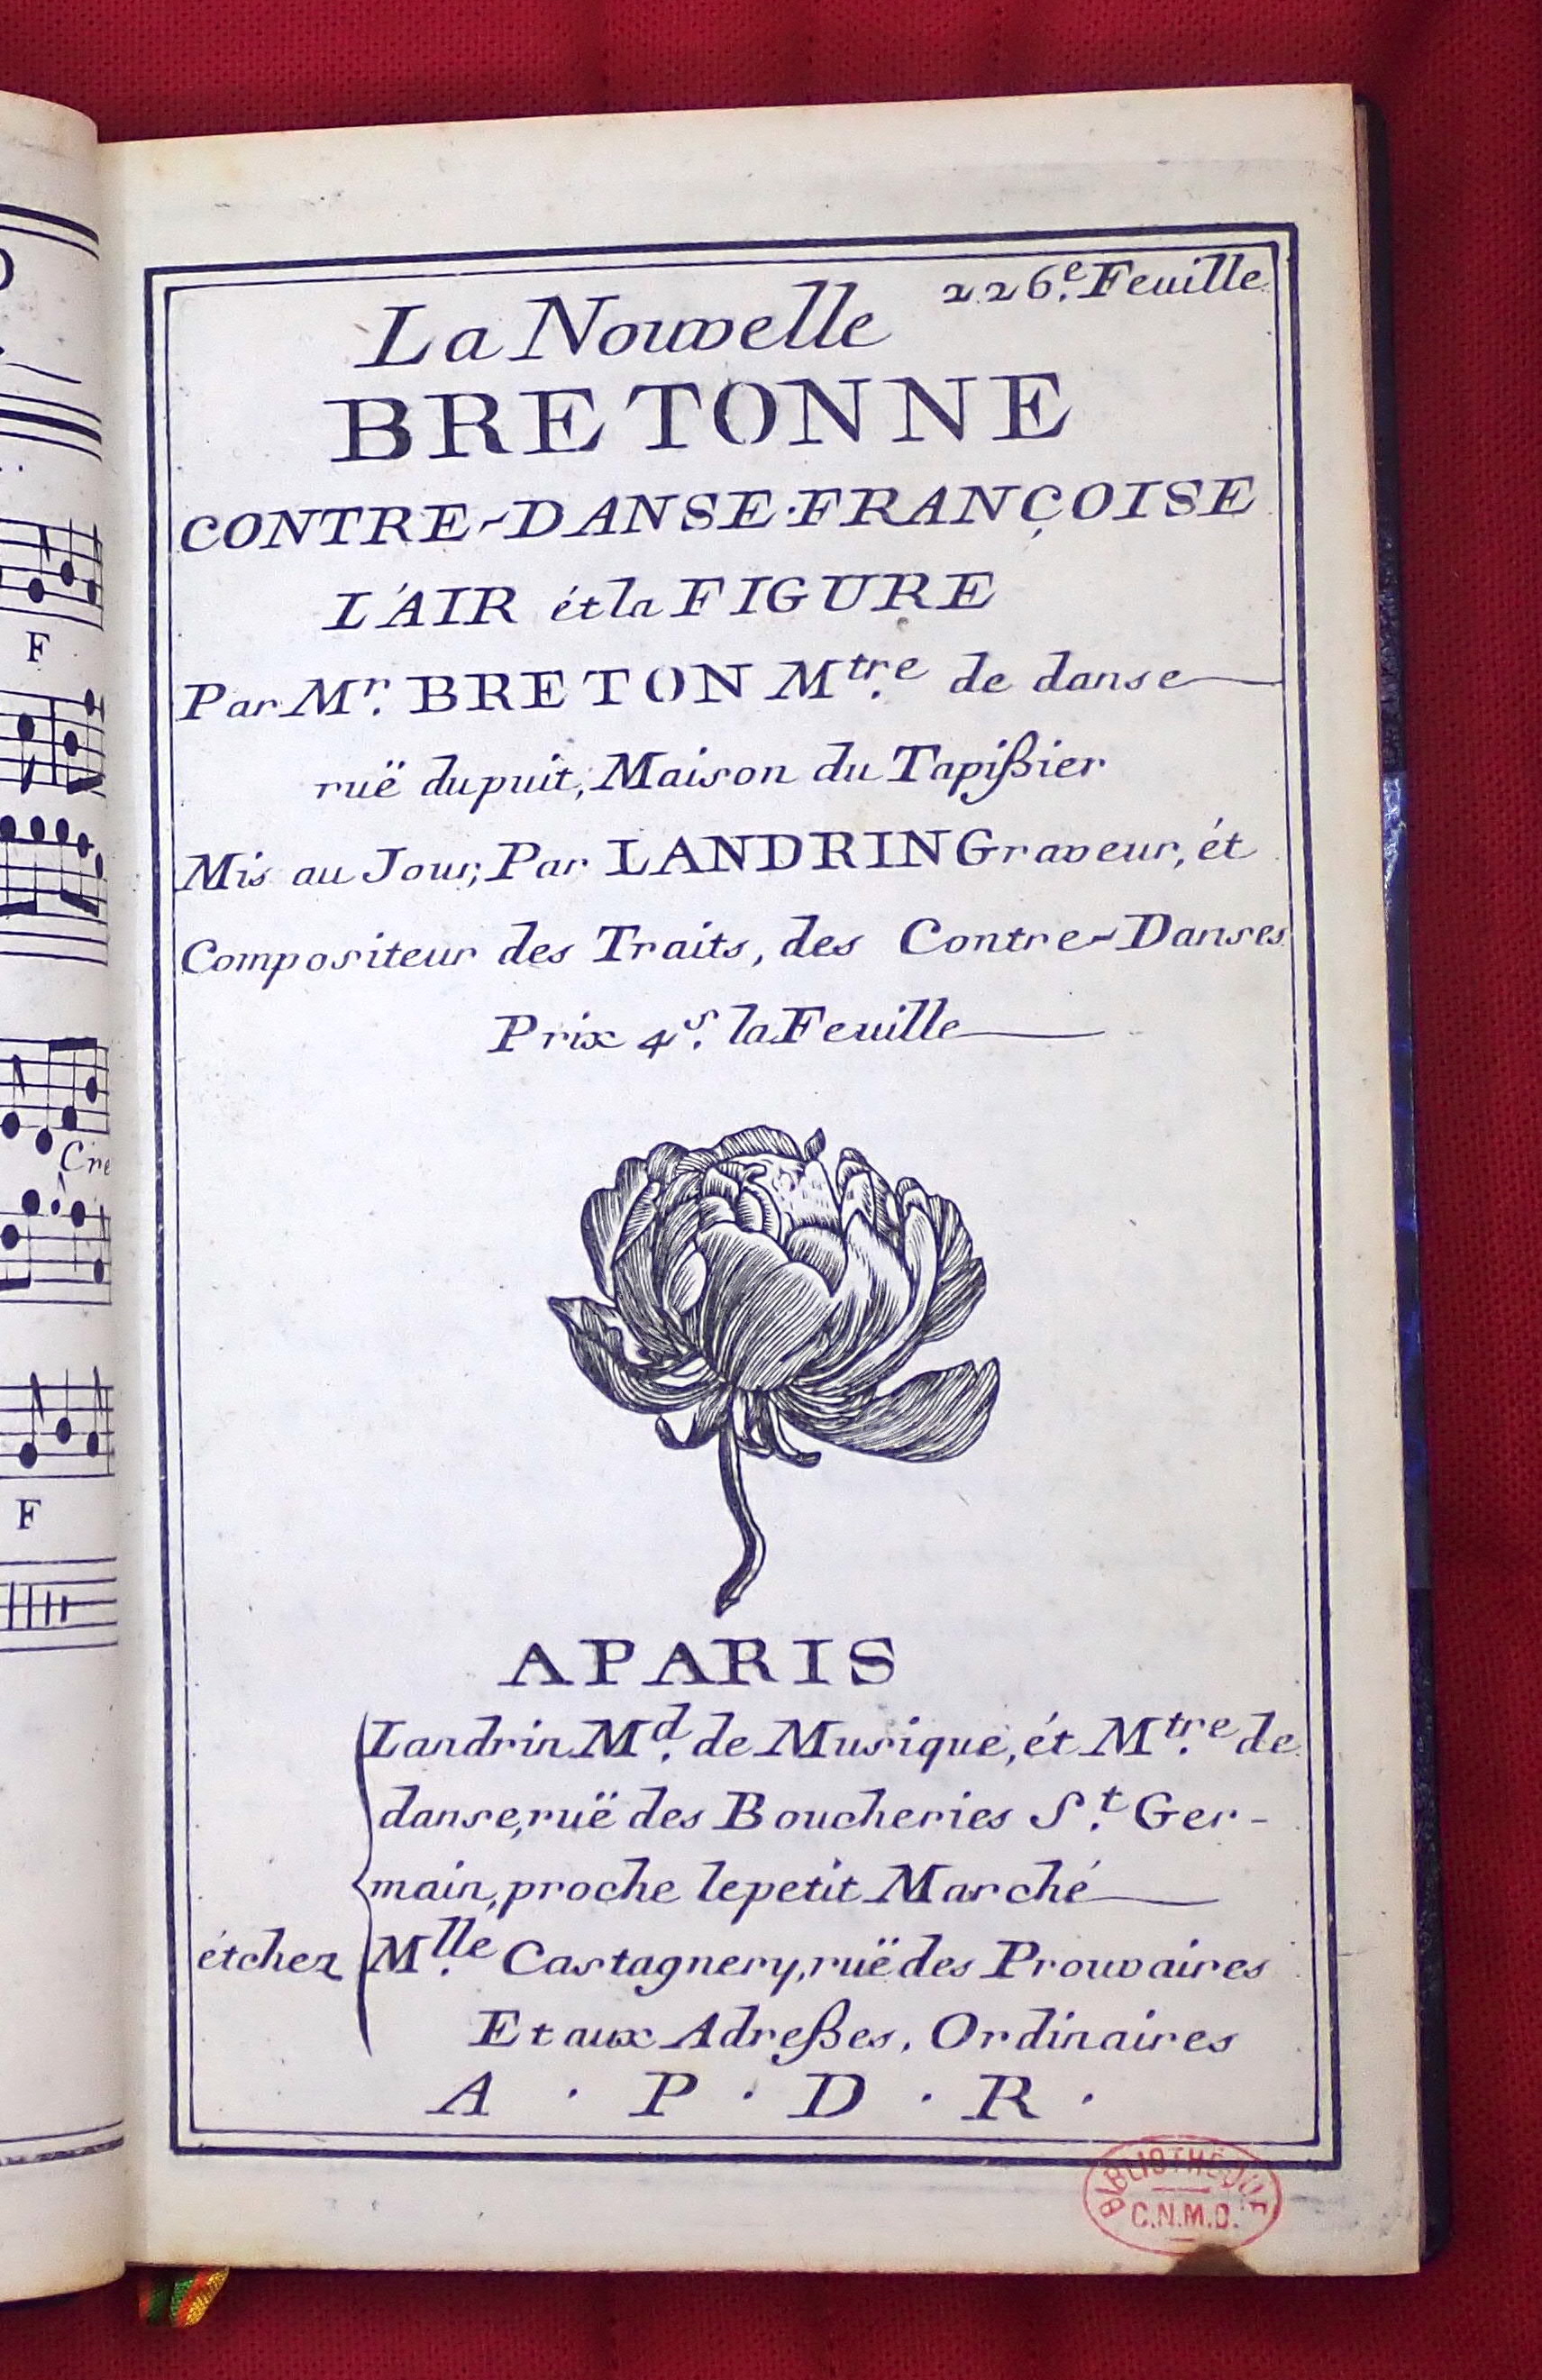 F
Cre
F
226.e Feuille
La Nouvelle
BRETONNE
CONTRE-DANSE·FRANÇOISE
L'AIR ét la FIGURE
Par Mr. BRETON Mtre. de danse
ruë dupuit, Maison du Tapißier
Mis au Jour, Par LANDRIN Graveur, ét
Compositeur des Traits, des Contre-Danses
Prix 4s. la Feuille
A PARIS
Landrin Md. de Musique, ét Mtre. de
danse, ruë des Boucheries St. Ger-
main, proche le petit Marché
ét chez Mlle. Castagnery, ruë des Prouvaires
Et aux Adreßes, Ordinaires
A . P . D . R .
BIBLIOTHEQUE
C.N.M.D.